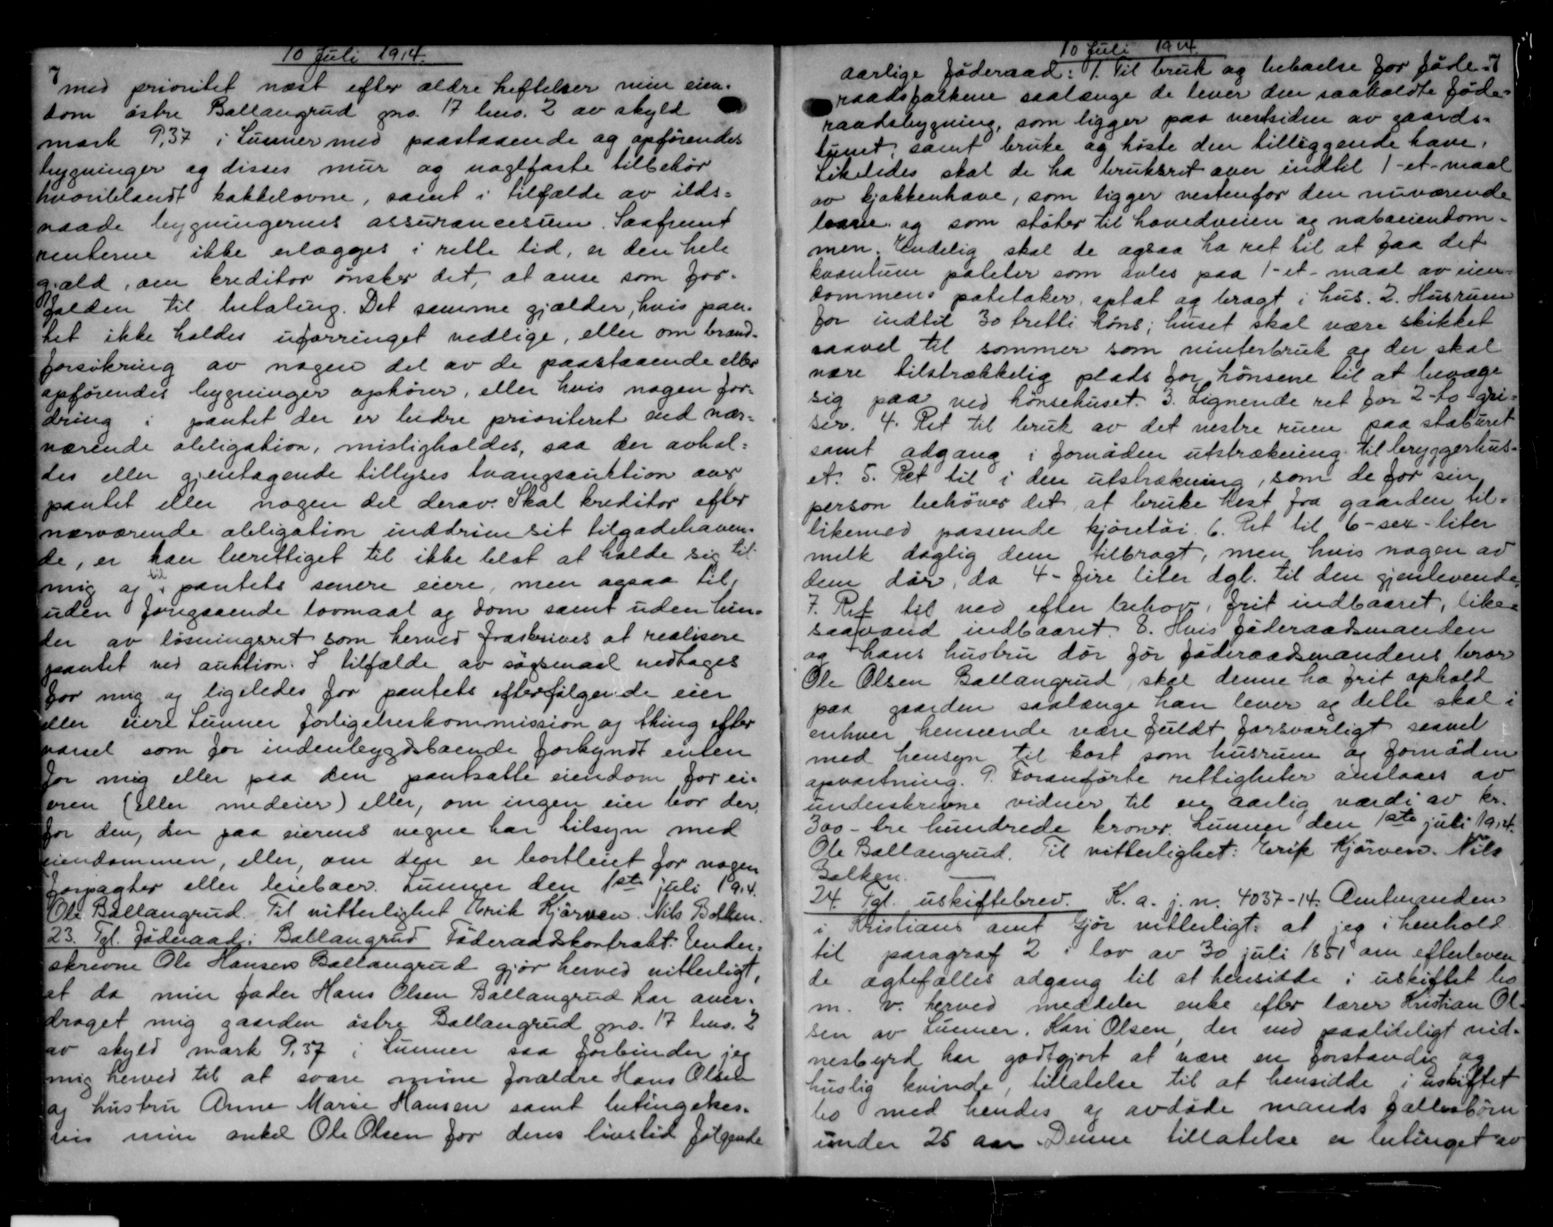 10 Juli 1914.
7
med prioritet næst efter ældre heftelser min eien-
dom østre Ballangrud gno. 17 bno. 2 av skyld
mark 9,37 i Lunner med paastaaende og opførendes
bygninger og disses mur og naglfaste tilbehør
hvoriblandt kakkelovne, samt i tilfælde av ilds-
vaade bygningernes assurancesum. Saafremt
renterne ikke erlægges i rette tid, er den hele
gjæld, om kreditor ønsker det, at anse som for-
falden til betaling. Det samme gjælder, hvis pan-
tet ikke holdes uforringet vedlige, eller om brand-
forsikring av nogen del av de paastaaende eller
opførendes bygninger ophører, eller hvis nogen for-
dring i pantet der er bedre prioriteret end nær-
værende obligation, misligholdes, saa der avhol-
des eller gjentagende tillyses tvangsauktion over
pantet eller nogen del derav. Skal kreditor efter
nærværende obligation inddrive sit tilgodehaven-
de, er han berettiget til ikke blot at holde sig til
mig og til pantets senere eiere, men ogsaa til,
uden foregaaende lovmaal og dom samt uden hin-
der av løsningsret som herved fraskrives at realisere
pantet ved auktion. I tilfælde av søgsmaal vedtages
for mig og ligeledes for pantets efterfølgende eier
eller eiere Lunner forligelseskommission og thing efter
varsel som for indenbygdsboende forkyndt enten
for mig eller paa den pantsatte eiendom for ei-
eren (eller medeier) eller, om ingen eier bor der,
for den, der paa eierens vegne har tilsyn med
eiendommen, eller, om den er bortleiet for nogen
forpagter eller leieboer. Lunner den 1ste juli 1914.
Ole Ballangrud. Til vitterlighet Erik Kjørven. Nils Bolken.
23. Tgl. føderaad i Ballangrud Føderaadskontrakt: Under-
skrevne Ole Hansen Ballangrud gjør herved vitterligt,
at da min fader Hans Olsen Ballangrud har over-
draget mig gaarden østre Ballangrud gno. 17 bno. 2
av skyld mark 9,37 i Lunner saa forbinder jeg
mig herved til at svare mine forældre Hans Olsen
og hustru Anne Marie Hansen samt betingelses-
vis min onkel Ole Olsen for deres livstid følgende
10 Juli 1914.
7
aarlige føderaad: 1. Til bruk og beboelse for føde-
raadsfolkene saalænge de lever den saakaldte føde-
raadsbygning, som ligger paa vestsiden av gaards-
tunet, samt bruke og høste den tilliggende have.
Likeledes skal de ha bruksret over indtil 1-et-maal
av kjøkkenhave, som ligger vestenfor den nuværende
laave og som støter til hovedveien og naboeiendom-
men. Endelig skal de ogsaa ha ret til at faa det
kvantum poteter som avles paa 1-et-maal av eien-
dommens potetaker, optat og bragt i hus. 2. Husrum
for indtil 30 tretti høns; huset skal være skikket
saavel til sommer som vinterbruk og der skal
være tilstrækkelig plads for hønsene til at bevæge
sig paa ved hønsehuset. 3. Lignende ret for 2-to-gri-
ser. 4. Ret til bruk av det vestre rum paa staburet
samt adgang i fornøden utstrækning til bryggerhus-
et. 5. Ret til i den utstrækning, som de for sin
person behøver det, at bruke hest fra gaarden til-
likemed passende kjøretøi 6. Ret til 6-sex-liter
melk daglig dem tilbragt, men hvis nogen av
dem dør, da 4-fire liter dgl. til den gjenlevende.
7. Ret til ved efter behov, frit indbaaret, like-
saa vand indbaaret. 8. Hvis føderaadsmanden
og hans hustru dør før føderaadsmandens bror
Ole Olsen Ballangrud, skal denne ha frit ophold
paa gaarden saalænge han lever og dette skal i
enhver henseende være fuldt forsvarligt saavel
med hensyn til kost som husrum og fornøden
opvartning. 9. Foranførte rettigheter anslaaes av
underskrevne vidner til en aarlig værdi av kr.
300- tre hundrede kroner. Lunner den 1ste juli 1914.
Ole Ballangrud. Til vitterlighet: Erik Kjørven. Nils
Bolken.
24. Tgl. uskiftebrev. K. a. j. n. 4037-14. Amtmanden
i Kristians amt Gjør vitterligt: at jeg i henhold
til paragraf 2 i lov av 30 juli 1851 om efterleven
de ægtefælles adgang til at hensidde i uskiftet bo
m. v. herved meddeler enke efter lærer Kristian Ol-
sen av Lunner, Kari Olsen, der ved paalideligt vid-
nesbyrd har godtgjort at være en forstandig og
huslig kvinde, tillatelse til at hensidde i uskiftet
bo med hendes og avdøde mands fællesbørn
under 25 aar. Denne tillatelse er betinget av